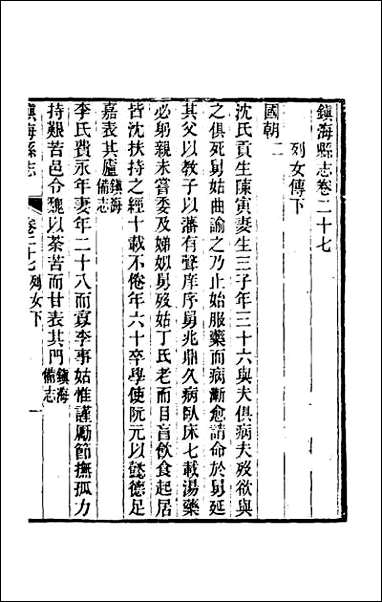 鎮海縣志卷二十七
列女傳下
國朝二
沈氏貢生陳寅妻生三子年三十六與夫俱病夫歿欲與
之俱死舅姑曲諭之乃止始服藥而病漸愈請命於舅延
其父以教子以藩有聲庠序舅兆鼎久病臥床七載湯藥
必躬親未嘗委及娣姒舅歿姑丁氏老而目盲飲食起居
皆沈扶持之經十載不倦年六十卒學使阮元以懿德足
嘉表其廬鎮海備志
李氏費永年妻年二十八而寡李事姑惟謹勵節撫孤力
持艱苦邑令魏以荼苦而甘表其門鎮海備志
鎮海縣志
卷二十七列女下
一